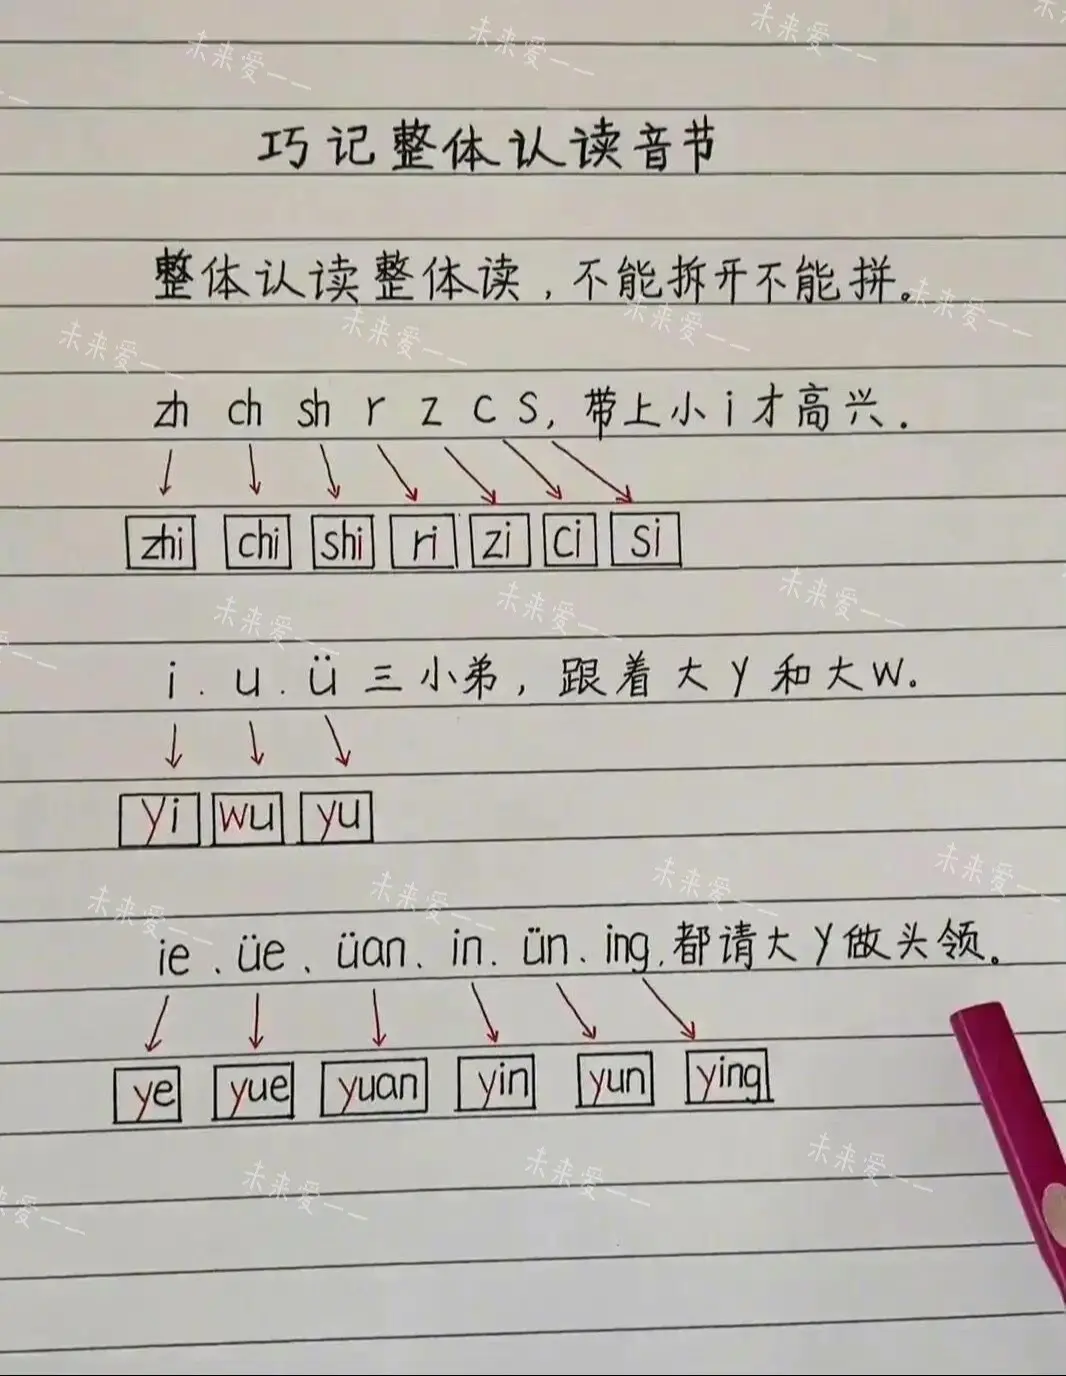 巧记整体认读音节
整体认读整体读，不能拆开不能拼。
zh ch sh r z c s, 带上小i才高兴.
zhi chi shi ri zi ci si
i . u . ü 三小弟，跟着大y和大w。
yi wu yu
ie 、üe 、üan、in、ün、ing, 都请大y做头领。
ye yue yuan yin yun ying
未来爱一一